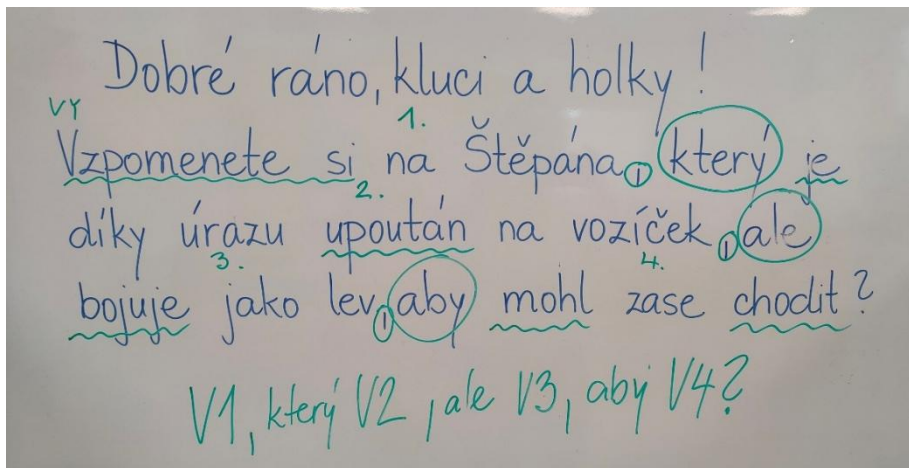 Dobré ráno, kluci a holky!
VY
1.
Vzpomenete si na Štěpána, který je
2.
díky úrazu upoután na vozíček, ale
3. 4.
bojuje jako lev, aby mohl zase chodit?
V1, který V2, ale V3, aby V4?